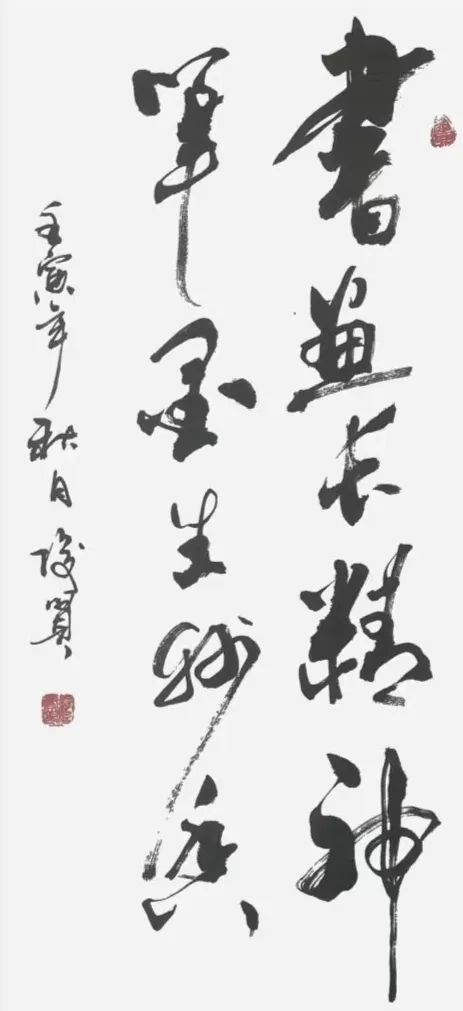 書畫長精神
筆墨生妙
壬寅年秋月賢